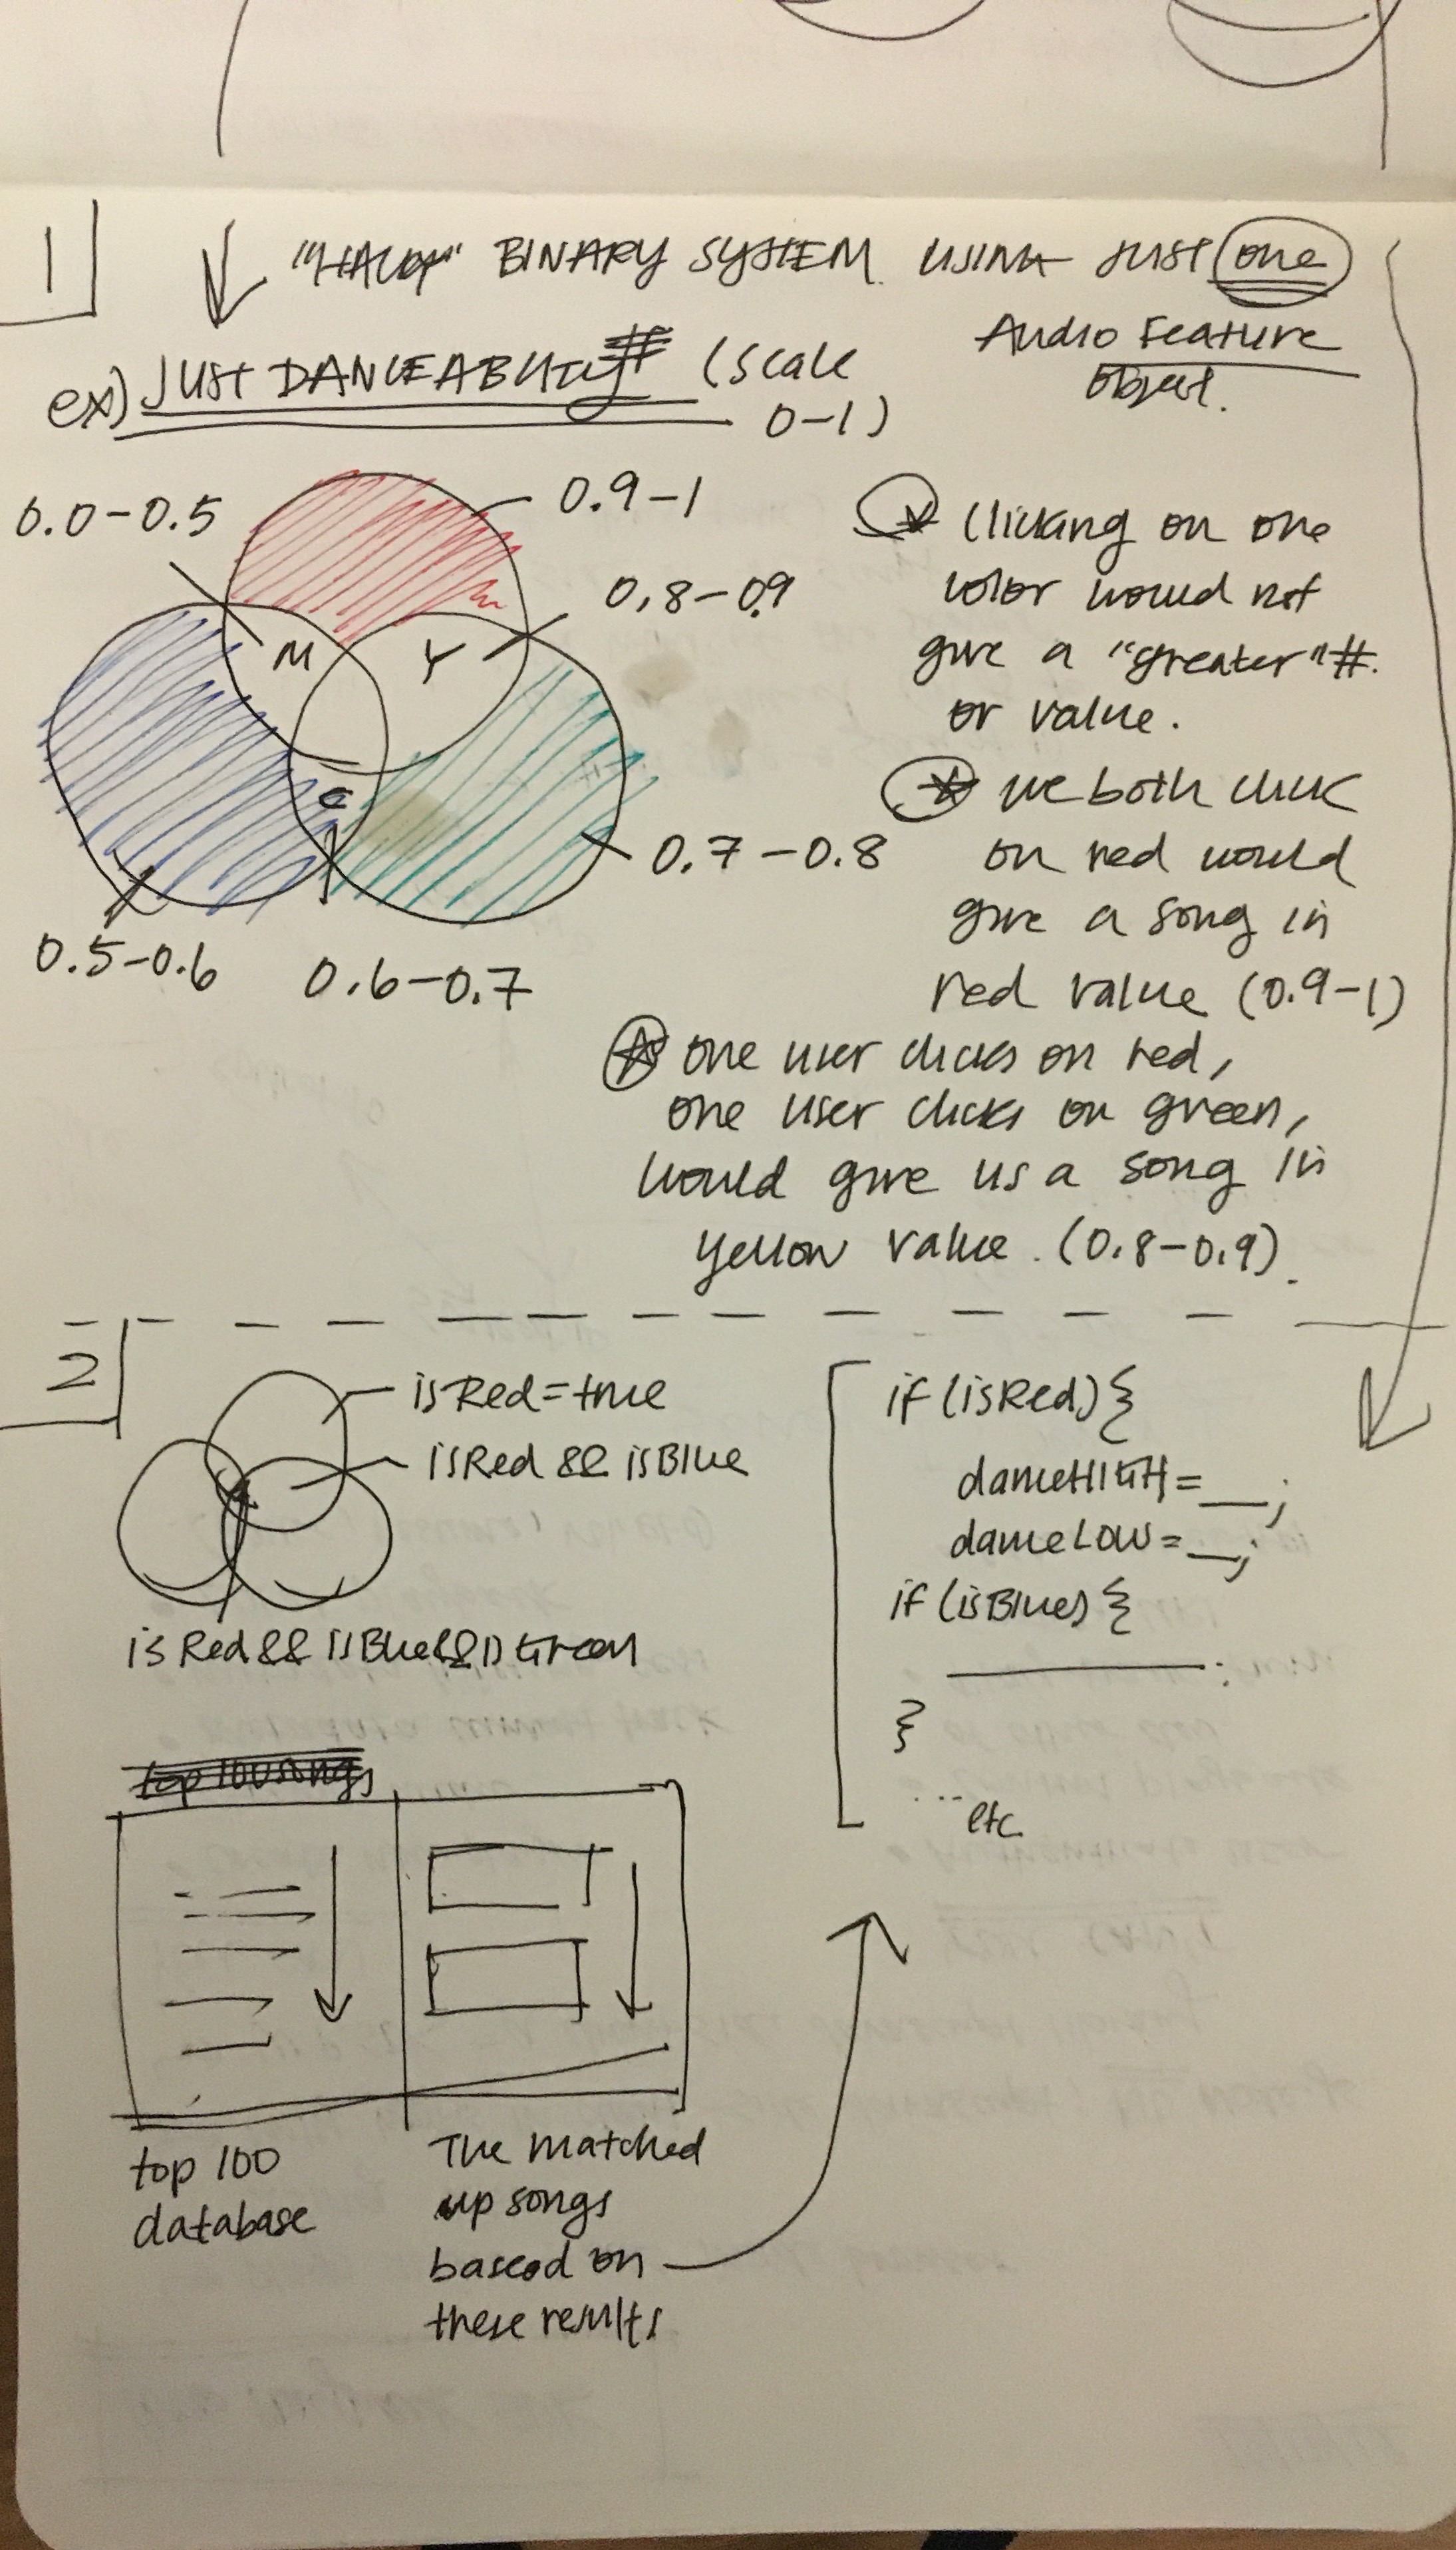 1
BINARY SYSTEM USING JUST one
Audio Feature
Object.
ex) JUST DANCEABILITY # (scale
0-1)
0.0-0.5
0.9-1
0.8-0.9
M
Y
C
0.7-0.8
0.5-0.6
0.6-0.7
clicking on one
color would not
give a "greater" #
or value.
we both click
on red would
give a song in
red value (0.9-1)
one user clicks on red,
one user clicks on green,
would give us a song in
yellow value. (0.8-0.9).
2
isRed=true
isRed && isBlue
isRed&&isBlue&&isGreen
if (isRed) {
danceHIGH=__;
danceLOW=__;
if (isBlue) {
;
}
... etc
top 100 songs
top 100
database
The matched
up songs
based on
these results